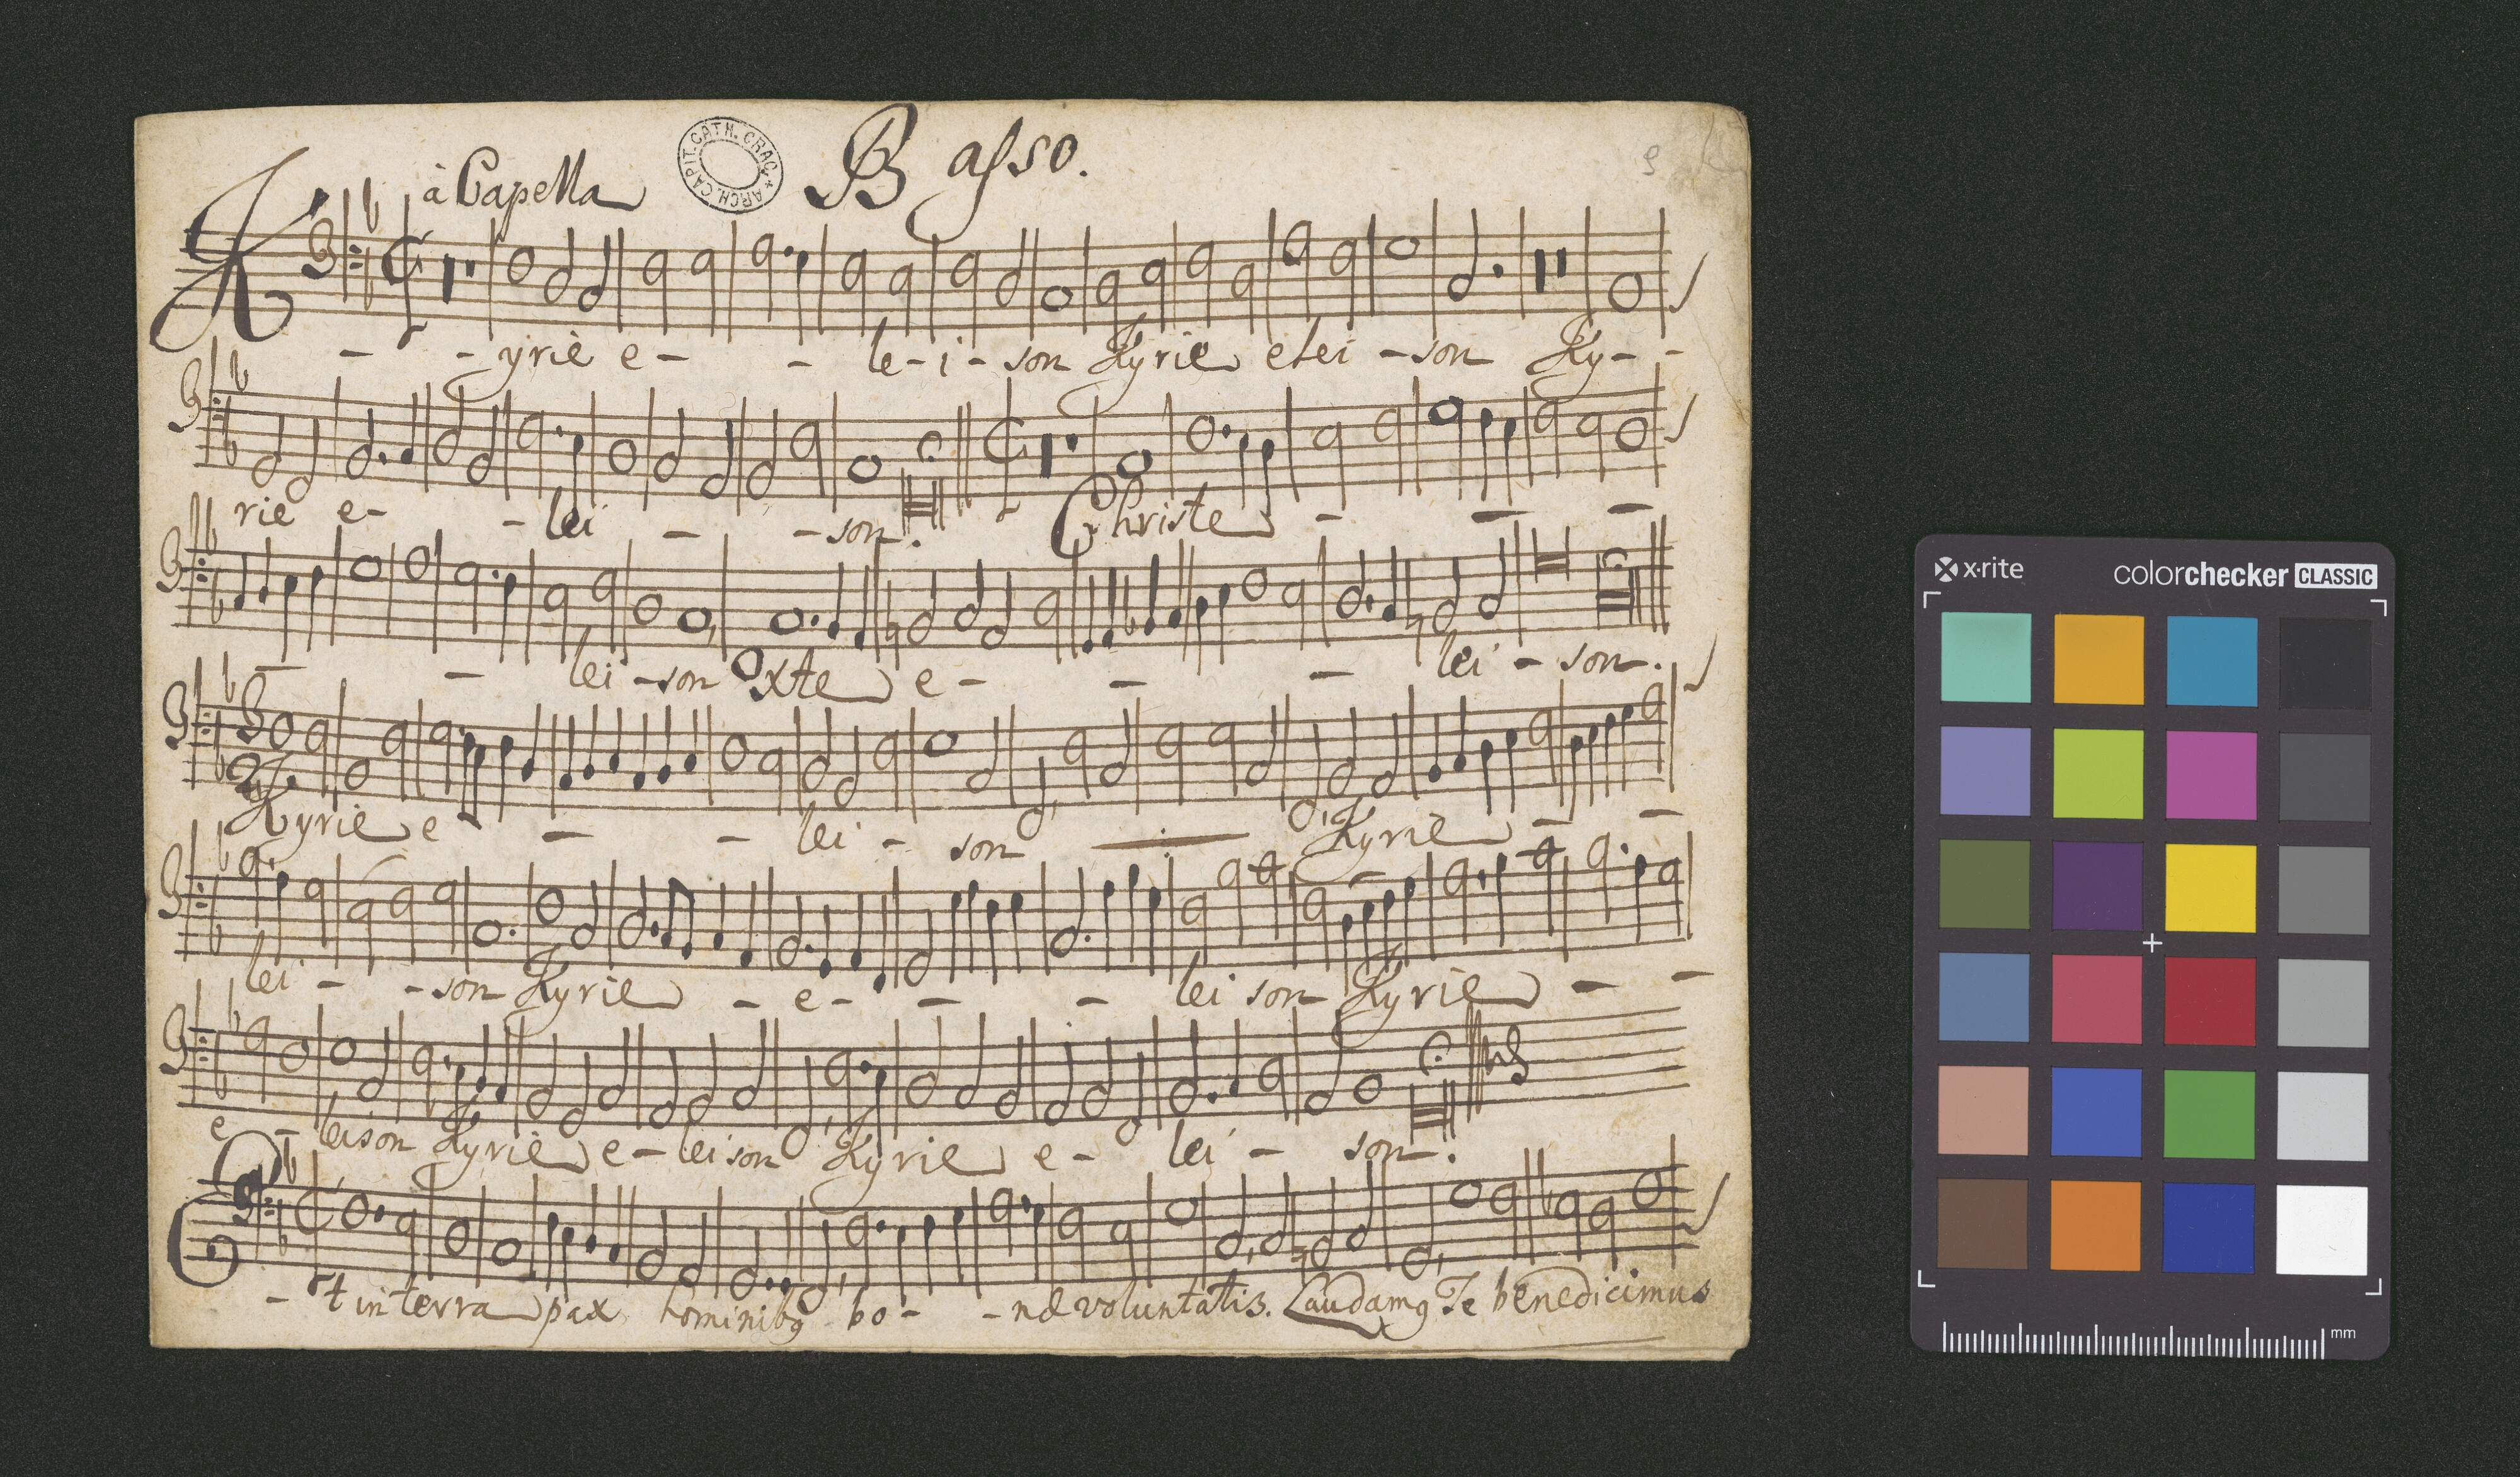 à Capella Basso.
ARCH. CAPIT. CATH. CRAC.
K - - yrie e - - le - i - son Kyrie elei - son Ky - -
rie e - - lei - - son. Christe - - -
- - lei - son Xte e - - - lei - son.
Kyrie e - - lei - son Kyrie - -
lei - - son Kyrie - e - - - lei son Kyrie - -
e - leison Kyrie e - leison Kyrie e - lei - son.
Et in terra pax hominibq bo - - næ voluntatis. Laudamq Te benedicimus
x·rite colorchecker CLASSIC
mm